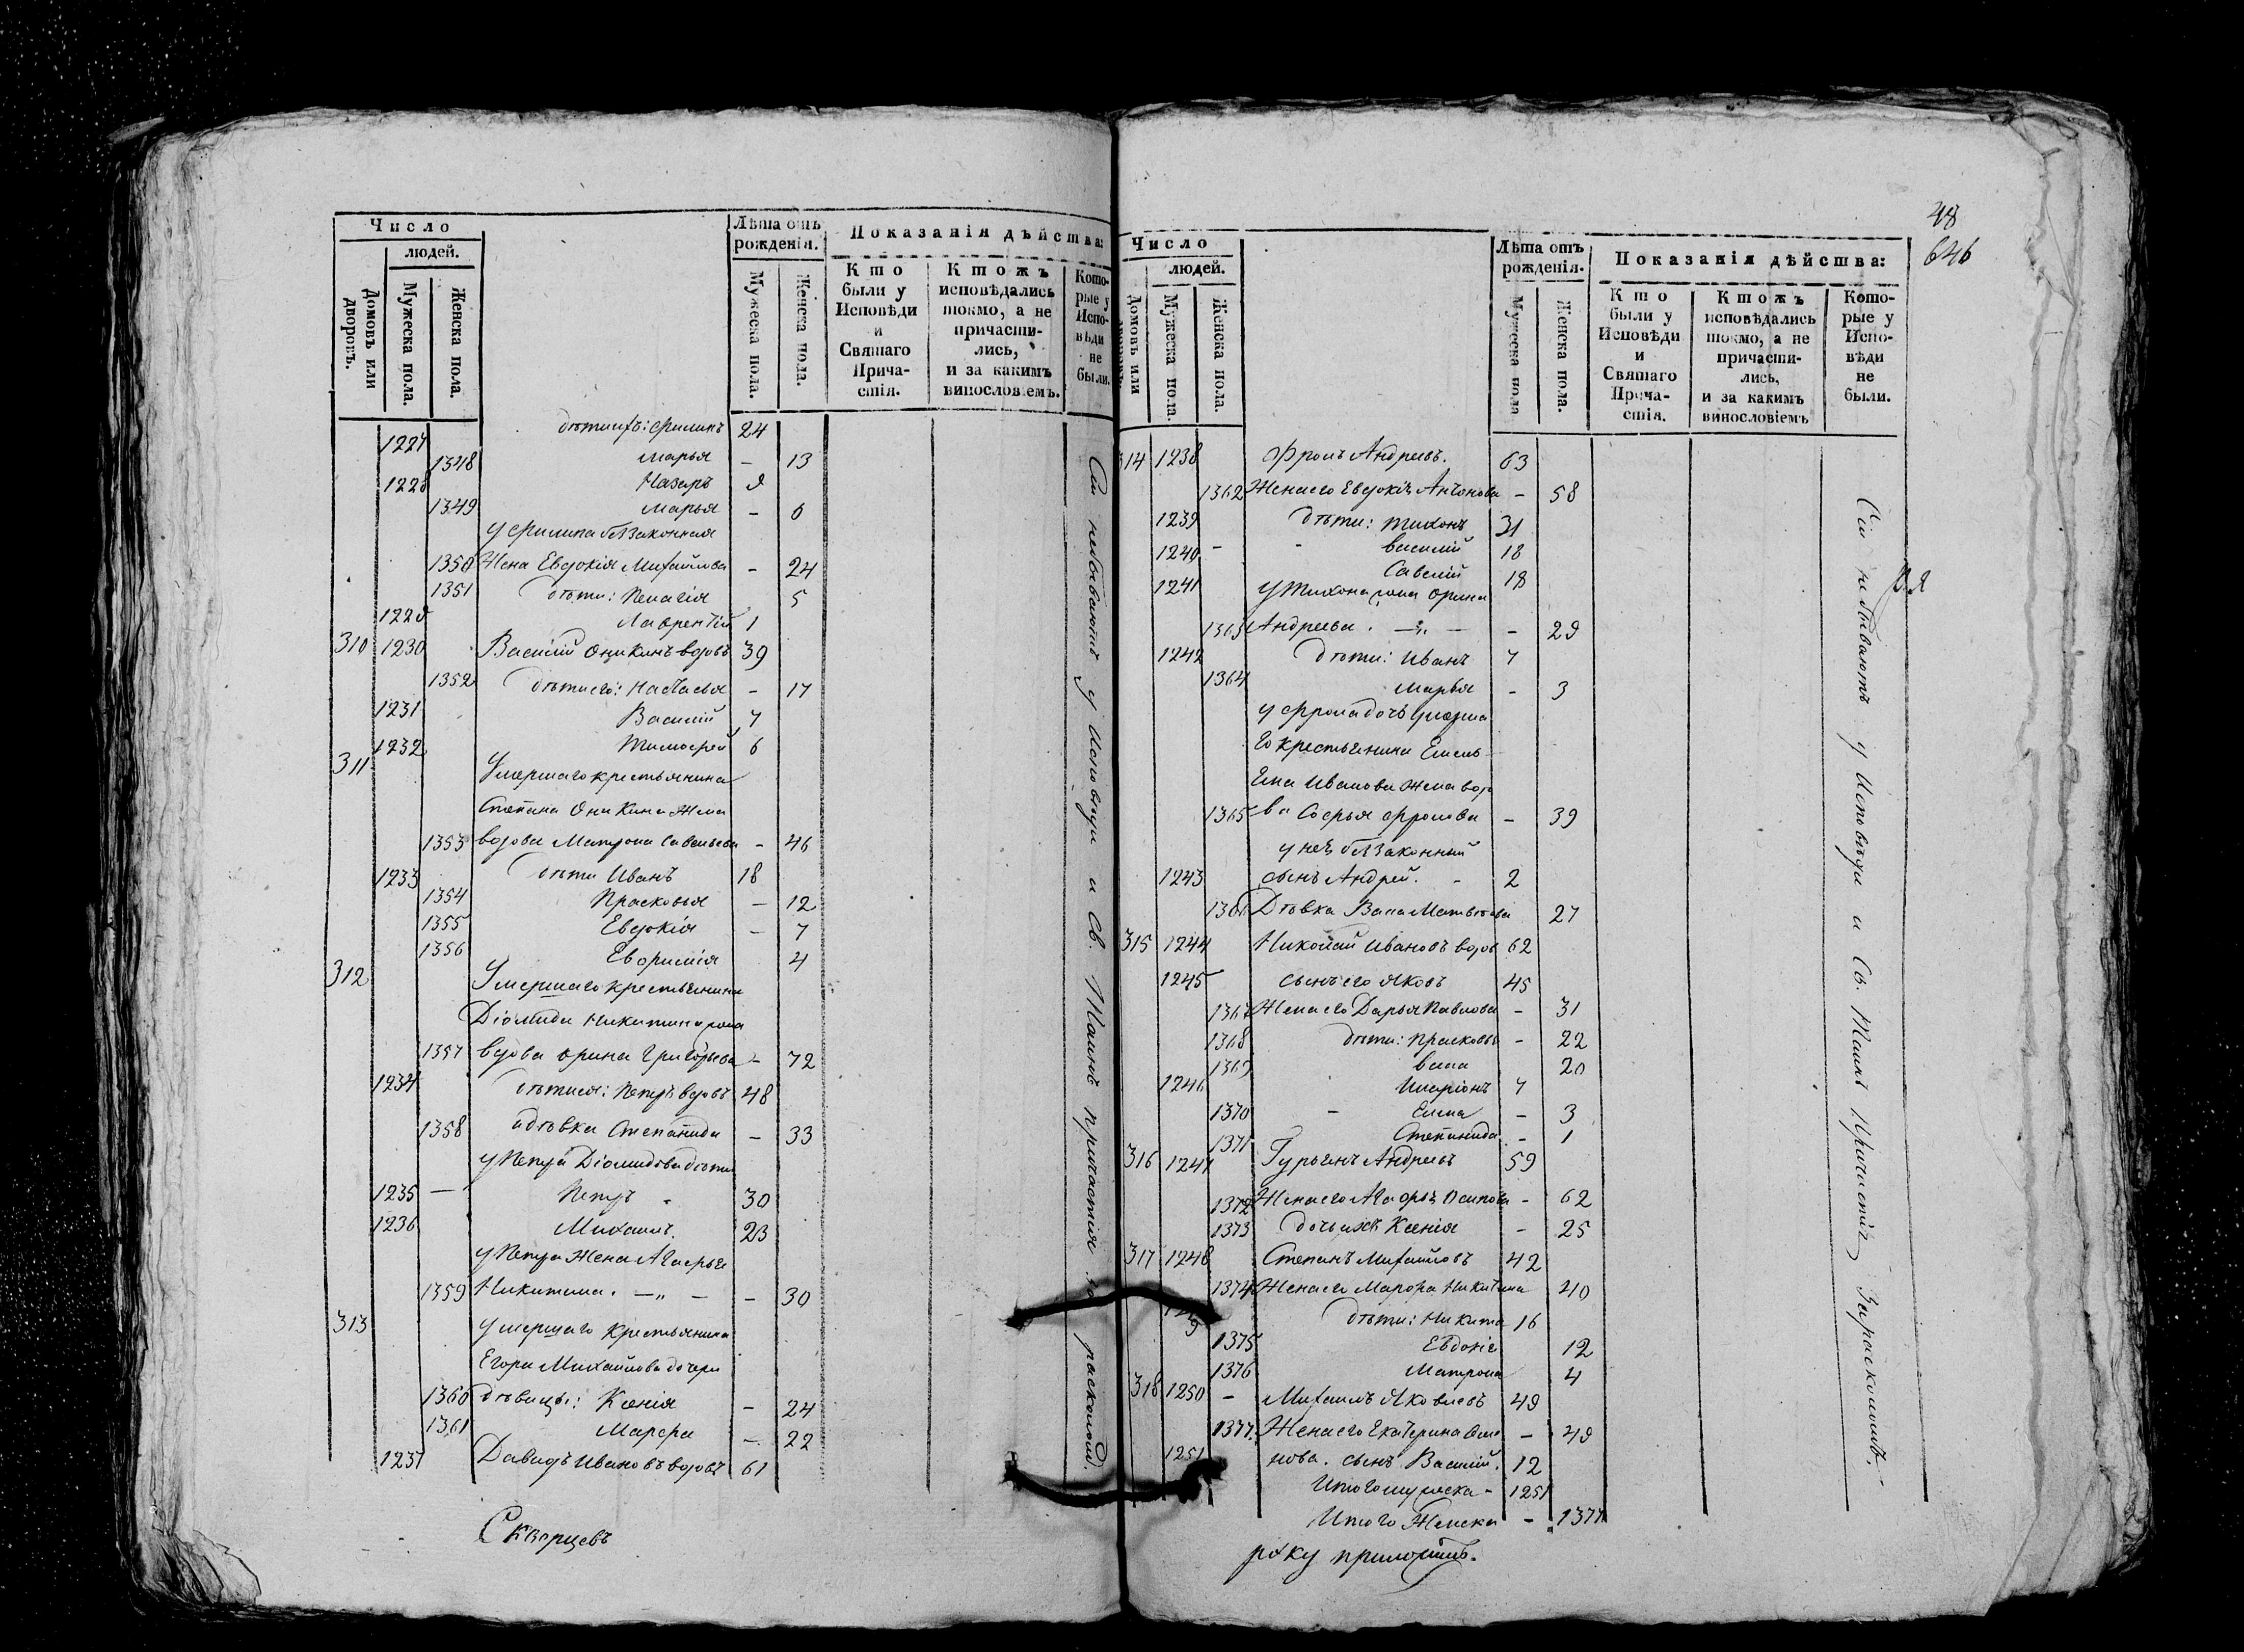 Число
людей.
Домовъ или дворовъ.
Мужеска пола.
Женска пола.
Лѣта отъ рожденія.
Мужеска пола.
Женска пола.
Показанія дѣйства:
Кто были у Исповѣди и Святаго Причастія.
Ктожъ исповѣдались токмо, а не причастились, и за какимъ винословіемъ.
Которые у Исповѣди не были.
1227 дѣти ихъ: Филипъ 24
1348 Марья – 13
1228 Назаръ 9
1349 Марья – 6
у Филипа беззаконная
1350 Жена Евдокія Михайлова – 24
1351 дѣти: Пелагія 5
1229 Лаврентій 1
310 1230 Василій Оникинъ вдовъ 39
1352 дѣти его: Настасья – 17
1231 Василій 7
1232 Тимофей 6
311 Умершаго крестьянина
Степана Оникина Жена
1353 вдова Матрона Савельева – 46
1233 дѣти Иванъ 18
1354 Прасковья – 12
1355 Евдокія – 7
1356 Евфимія 4
312 Умершаго крестьянина
Діомида Никитина жена
1357 вдова Орина Григорьева – 72
1234 дѣти ея: Петръ вдовъ 48
1358 дѣвка Степанида – 33
у Петра Діомидова дѣти
1235 – Петръ 30
1236 Михаилъ. 23
у Петра Жена Агафья
1359 Никитина. – „ – – 30
313 умершаго крестьянина
Егора Михайлова дочери
1360 дѣвицы: Ксенія – 24
1361 Марфа – 22
1237 Давидъ Ивановъ вдовъ 61
Сіи небываютъ у Исповѣди и Св. Таинъ причастія за расколомъ.
Скворцевъ
48
646
Число
людей.
Домовъ или
Мужеска пола.
Женска пола.
Лѣта отъ рожденія.
Мужеска пола
Женска пола.
Показанія дѣйства:
Кто были у Исповѣди и Святаго Причастія.
Ктожъ исповѣдались токмо, а не причастились, и за какимъ винословіемъ
Которые у Исповѣди не были.
314 1238 Фролъ Андреевъ. 63
1362 Жена его Евдокія Антонова – 58
1239 дѣти: Тихонъ 31
1240 – Василій 18
Савелій
1241 у Тихона жена Орина 18
1363 Андреева. – „ – – 29
1242 дѣти: Иванъ 7
1364 Марья – 3
у Фрола дочь умерша
го крестьянина Емель
яна Иванова Жена вдо
1365 ва Софья Фролова – 39
у неѣ беззаконный
1243 сынъ Андрей. – 2
1366 Дѣвка Васа Матвѣева 27
315 1244 Николай Ивановъ вдов 62
1245 сынъ его Яковъ 45
1367 Жена его Дарья Павлова – 31
1368 дѣти: Прасковья – 22
1369 васа 20
1246 Иларіонъ 7
1370 – Елена – 3
1371 Степанида – 1
316 1247 Гурьянъ Андреевъ 59
1372 Жена его Агафья Осипова – 62
1373 дочь ихъ Ксенія – 25
317 1248 Степанъ Михайловъ 42
1374 Жена его Марфа Никитина 40
1249 дѣти: Никита 16
1375 Евдокія 12
1376 Матрона 4
318 1250 – Михаилъ Яковлевъ 49
1377. Жена его Екатерина – 49
1251 нова. сынъ Василій. 12
Итого мужеска – 1251
Итого Женска – 1377
Сіи небываютъ у Исповѣди и Св. Таинъ Причастія за расколомъ.
руку приложилъ.